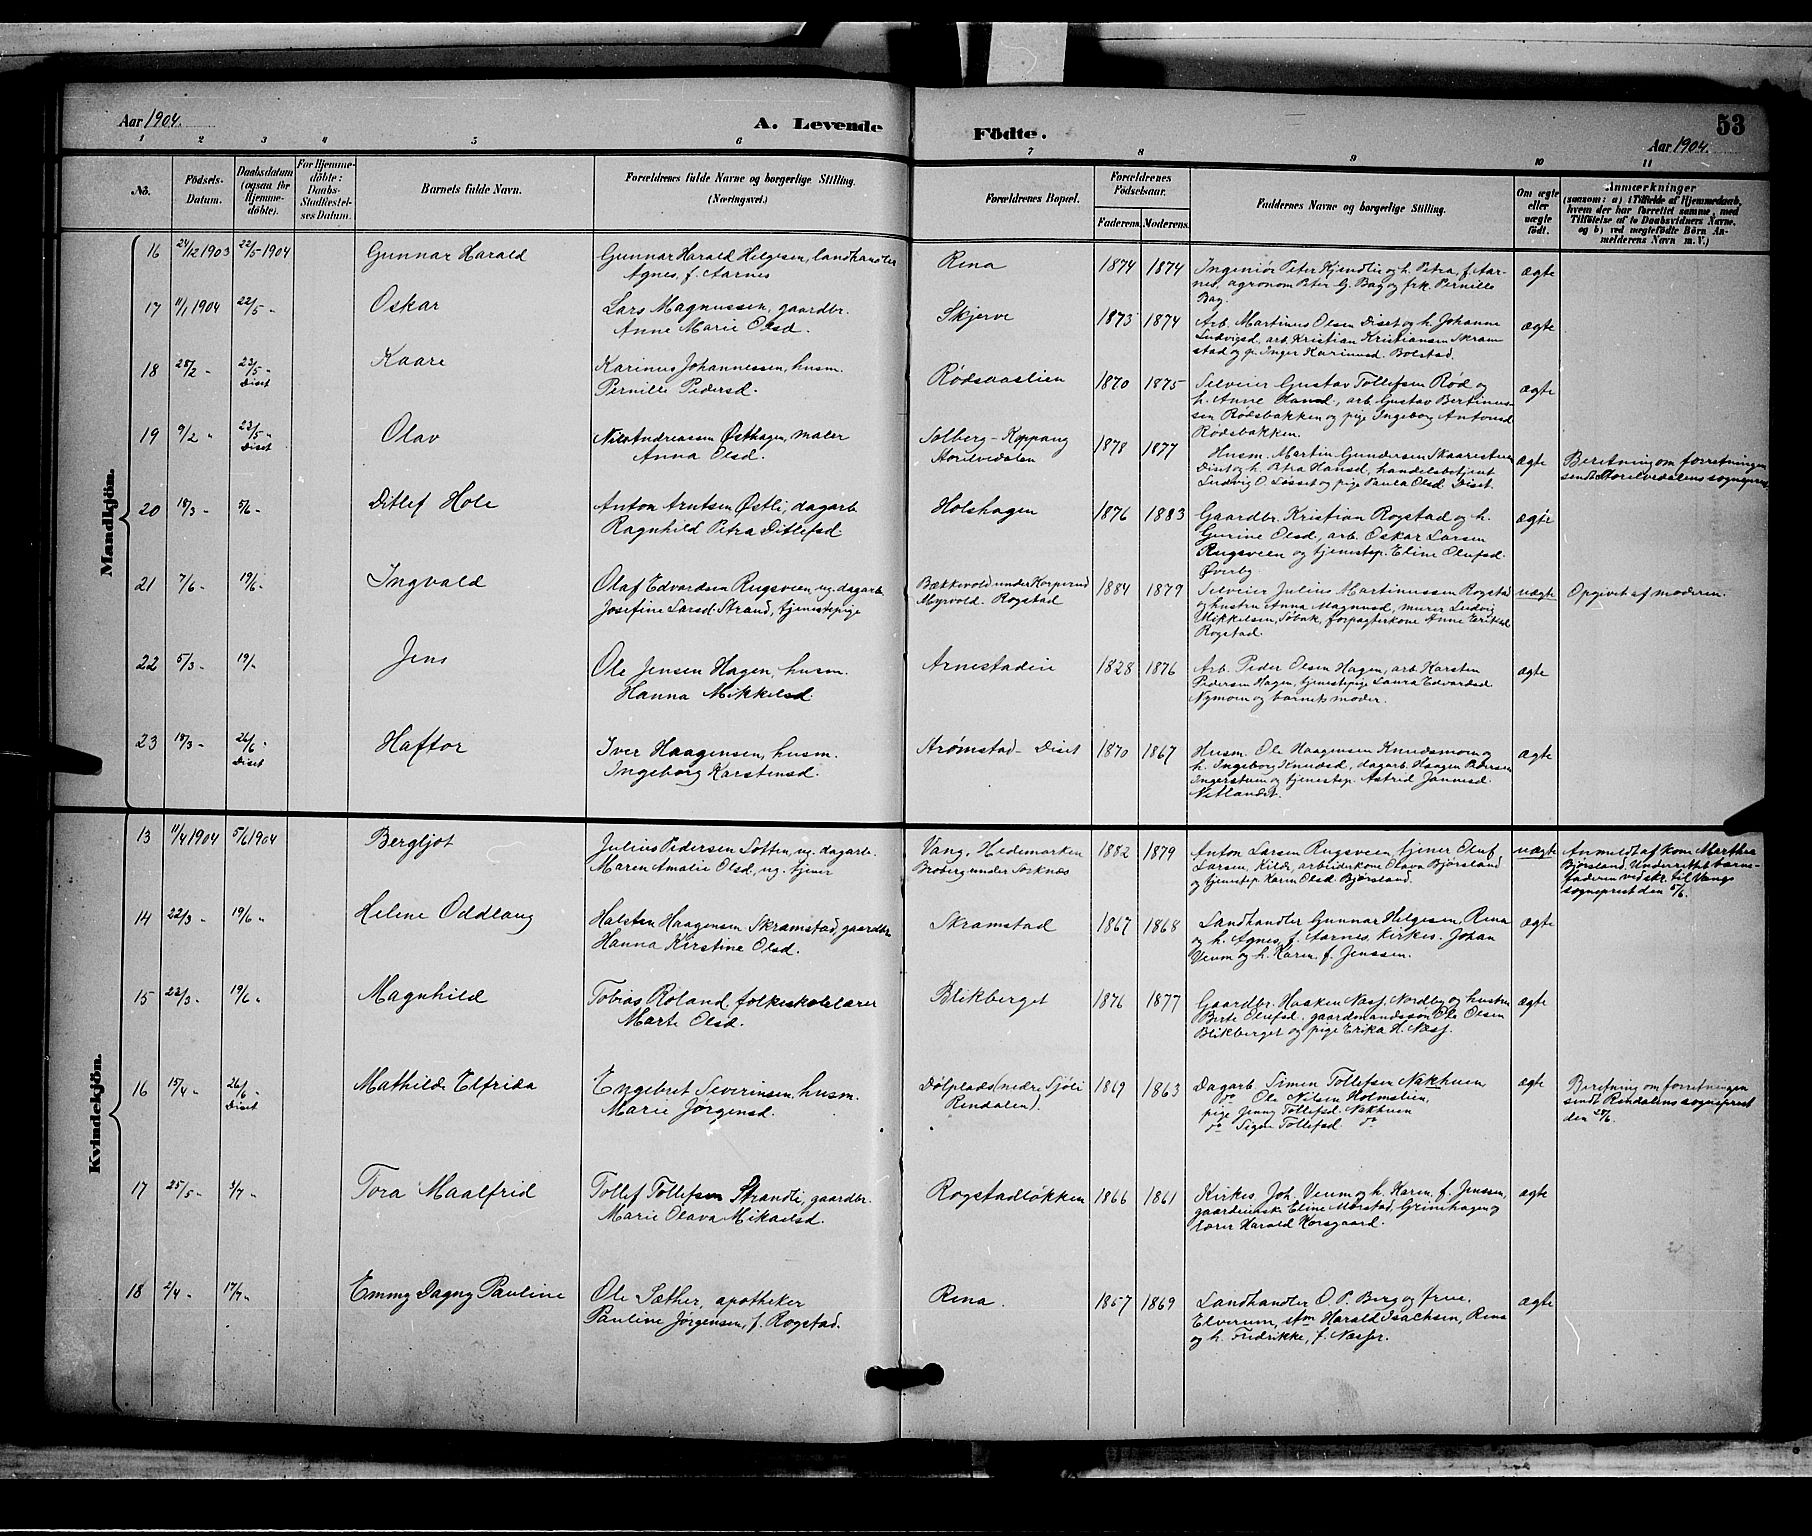 Aar 1904.
A. Levende
Födte.
53
Aar 1904.
1 2 3 4 5 6 7 8 9 10 11
No.
Födsels-
Datum.
Daabsdatum
(ogsaa for
Hjemme-
döbte).
For Hjemme-
döbte:
Daabs-
Stadfæstel-
ses Datum.
Barnets fulde Navn.
Forældrenes fulde Navne og borgerlige Stilling.
(Næringsvei.)
Forældrenes Bopæl.
Forældrenes
Födselsaar.
Faderens. Moderens.
Faddernes Navne og borgerlige Stilling.
Om ægte
eller
uægte
födt.
Anmærkninger
(saasom: a) i Tilfælde af Hjemmedaab,
hvem der har forrettet samme, med
Tilföielse af to Daabsvidners Navne.
og b) ved uægtefödte Börn An-
melderens Navn m. V.)
Mandkjön.
16 24/12 1903 22/5-1904 Gunnar Harald
Gunnar Harald Helgesen, landhandler
Agnes, f. Aarnes
Rena 1874 1874
Ingeniør Peter Kjendlie og h. Petra, f. Aar-
nes, agronom Peter G. Bag og frk. Pernille
Bag.
ægte
17 11/1 1904 22/5- Oskar
Lars Magnussen, gaardbr.
Anne Marie Olsd.
Skjerve 1873 1874
Arb. Martinus Olsen Diset og h. Johanne
Ludvigsd, arb. Kristian Kristiansen Skram
stad og p. Inger Karinusd Bolstad.
ægte
18 28/2 - 23/5- Diset Kaare
Karinus Johannessen, husm.
Pernille Pedersd.
Rödsaaslien 1870 1875
Selveier Gustav Tollefsen Rød og
h. Anne Hansd, arb. Gustav Bertinus-
sen Rödsbakken og pige Ingeborg Antonsd
Rödsbakken.
ægte
19 9/2 " 23/5- Diset Olav
Nils Andreassen Østhagen, maler
Anna Olsd.
Solberg - Koppang
Storelvedalen
1878 1877
Husm. Martin Gundersen Skaaresteen
Diset og h. Petra Hansd, handelsbetjent
Ludvig O. Løsset og pige Paula Olsd. Diset.
ægte
Beretning om forretningen
sendt Storelvedalens sogneprest.
20 18/3 - 5/6- Ditlef Hole
Anton Arntsen Østli, dagarb.
Ragnhild Petra Ditlefsd
Holshagen 1876 1883
Gaardbr. Kristian Rogstad og h.
Gurine Olsd, arb. Oskar Larsen
Rugsveen og tjenestep. Eline Olufsd.
Øverby.
ægte
21 7/6 - 19/6- Ingvald
Olaf Edvardsen Rugsveen, ug. dagarb.
Josefine Larsd Strand, tjenestepige
Bækkevold under
Myrvold. Rogstad
1884 1879
Selveier Julius Martinussen Rogstad
og hustru Anna Magnusd, murer Ludvig
Mikkelsen, Søbak, forpagterkone Anne Eriksd
Rogstad.
uægte
Opgivet af moderen.
22 5/3- 19/- Jens
Ole Jensen Hagen, husm.
Hanna Mikkelsd.
Arnestadeie 1828 1876
Arb. Peder Olsen Hagen, arb. Karsten
Pedersen Hagen, tjenestepige Laura Edvardsd
Nymoen og barnets moder.
ægte
23 18/3- 26/6- Diset Haftor
Iver Haagensen, husm.
Ingeborg Karstensd.
Strømstad - Diset 1870 1867
Husm. Ole Haagensen Knudsmoen og
h. Ingeborg Knudsd, dagarb. Haagen Pedersen
Ingerstuen og tjenestep. Astrid Jannesd.
Nitlandet.
ægte
Kvindekjön.
13 11/4 1904 5/6 1904 Bergljot
Julius Pedersen Sotten, ug. dagarb.
Maren Amalie Olsd, ug. tjener
Vang, Hedemarken
Broberg under Torknæs
1882 1879
Anton Larsen Rugsveen, tjener Oluf
Larsen, Kilde, arbeiderkone Olava Bjørsland
og tjenestep. Karen Olsd. Bjørsland.
uægte
Anmeldt af kone Marthea
Bjørsland. Underrettet barne-
faderen ved skr. til Vangs
sogneprest den 5/6.
14 22/3- 19/6- Helene Oddlaug
Halsten Haagensen Skramstad, gaardbr.
Hanna Kirstine Olsd.
Skramstad 1867 1868
Landhandler Gunnar Helgesen, Rena
og h. Agnes, f. Aarnes, Kirkes. Johan
Veum og h. Karen, f. Jenssen.
ægte
15 22/3- 19/6- Magnhild
Tobias Roland, folkeskolelærer
Marte Olsd.
Blikberget 1876 1877
Gaardbr. Haaken Næsj. Nordby og hustru
Berte Olufsd. gaardmandssøn Ole Olsen
Blikberget og pige Erika H. Næsj.
ægte
16 15/4- 26/6- Diset Mathilde Elfrida
Engebret Severinsen, husm.
Marie Jørgensd.
Dølplads (nedre Sjøli
Rendalen).
1869 1863
Dagarb. Simen Tollefsen Nakhuen
do Ole Nilsen Holmslien,
pige Jenny Tollefsd. Nakhuen
do Signe Tollefsd do
ægte
Beretning om forretningen
sendt Rendalens sogneprest
den 27/6.
17 25/5- 3/7- Tora Maalfrid
Tollef Tollefsen Strandli, gaardbr.
Marie Olava Mikaelsd.
Rogstadløkken 1866 1861
Kirkes. Joh. Veum og h. Karen, f. Jenssen,
gaardenske Eline Mørstad, Grinehagen og
lærer Harald Korsgaard.
ægte
18 2/4- 17/7- Emmy Dagny Pauline
Ole Sæther, apotheker
Pauline Jørgensen, f. Rogstad.
Rena. 1857 1869
Landhandler O. P. Berg og frue,
Elverum, stm Harald Isachsen, Rena
og h. Fredrikke, f. Næsjer.
ægte